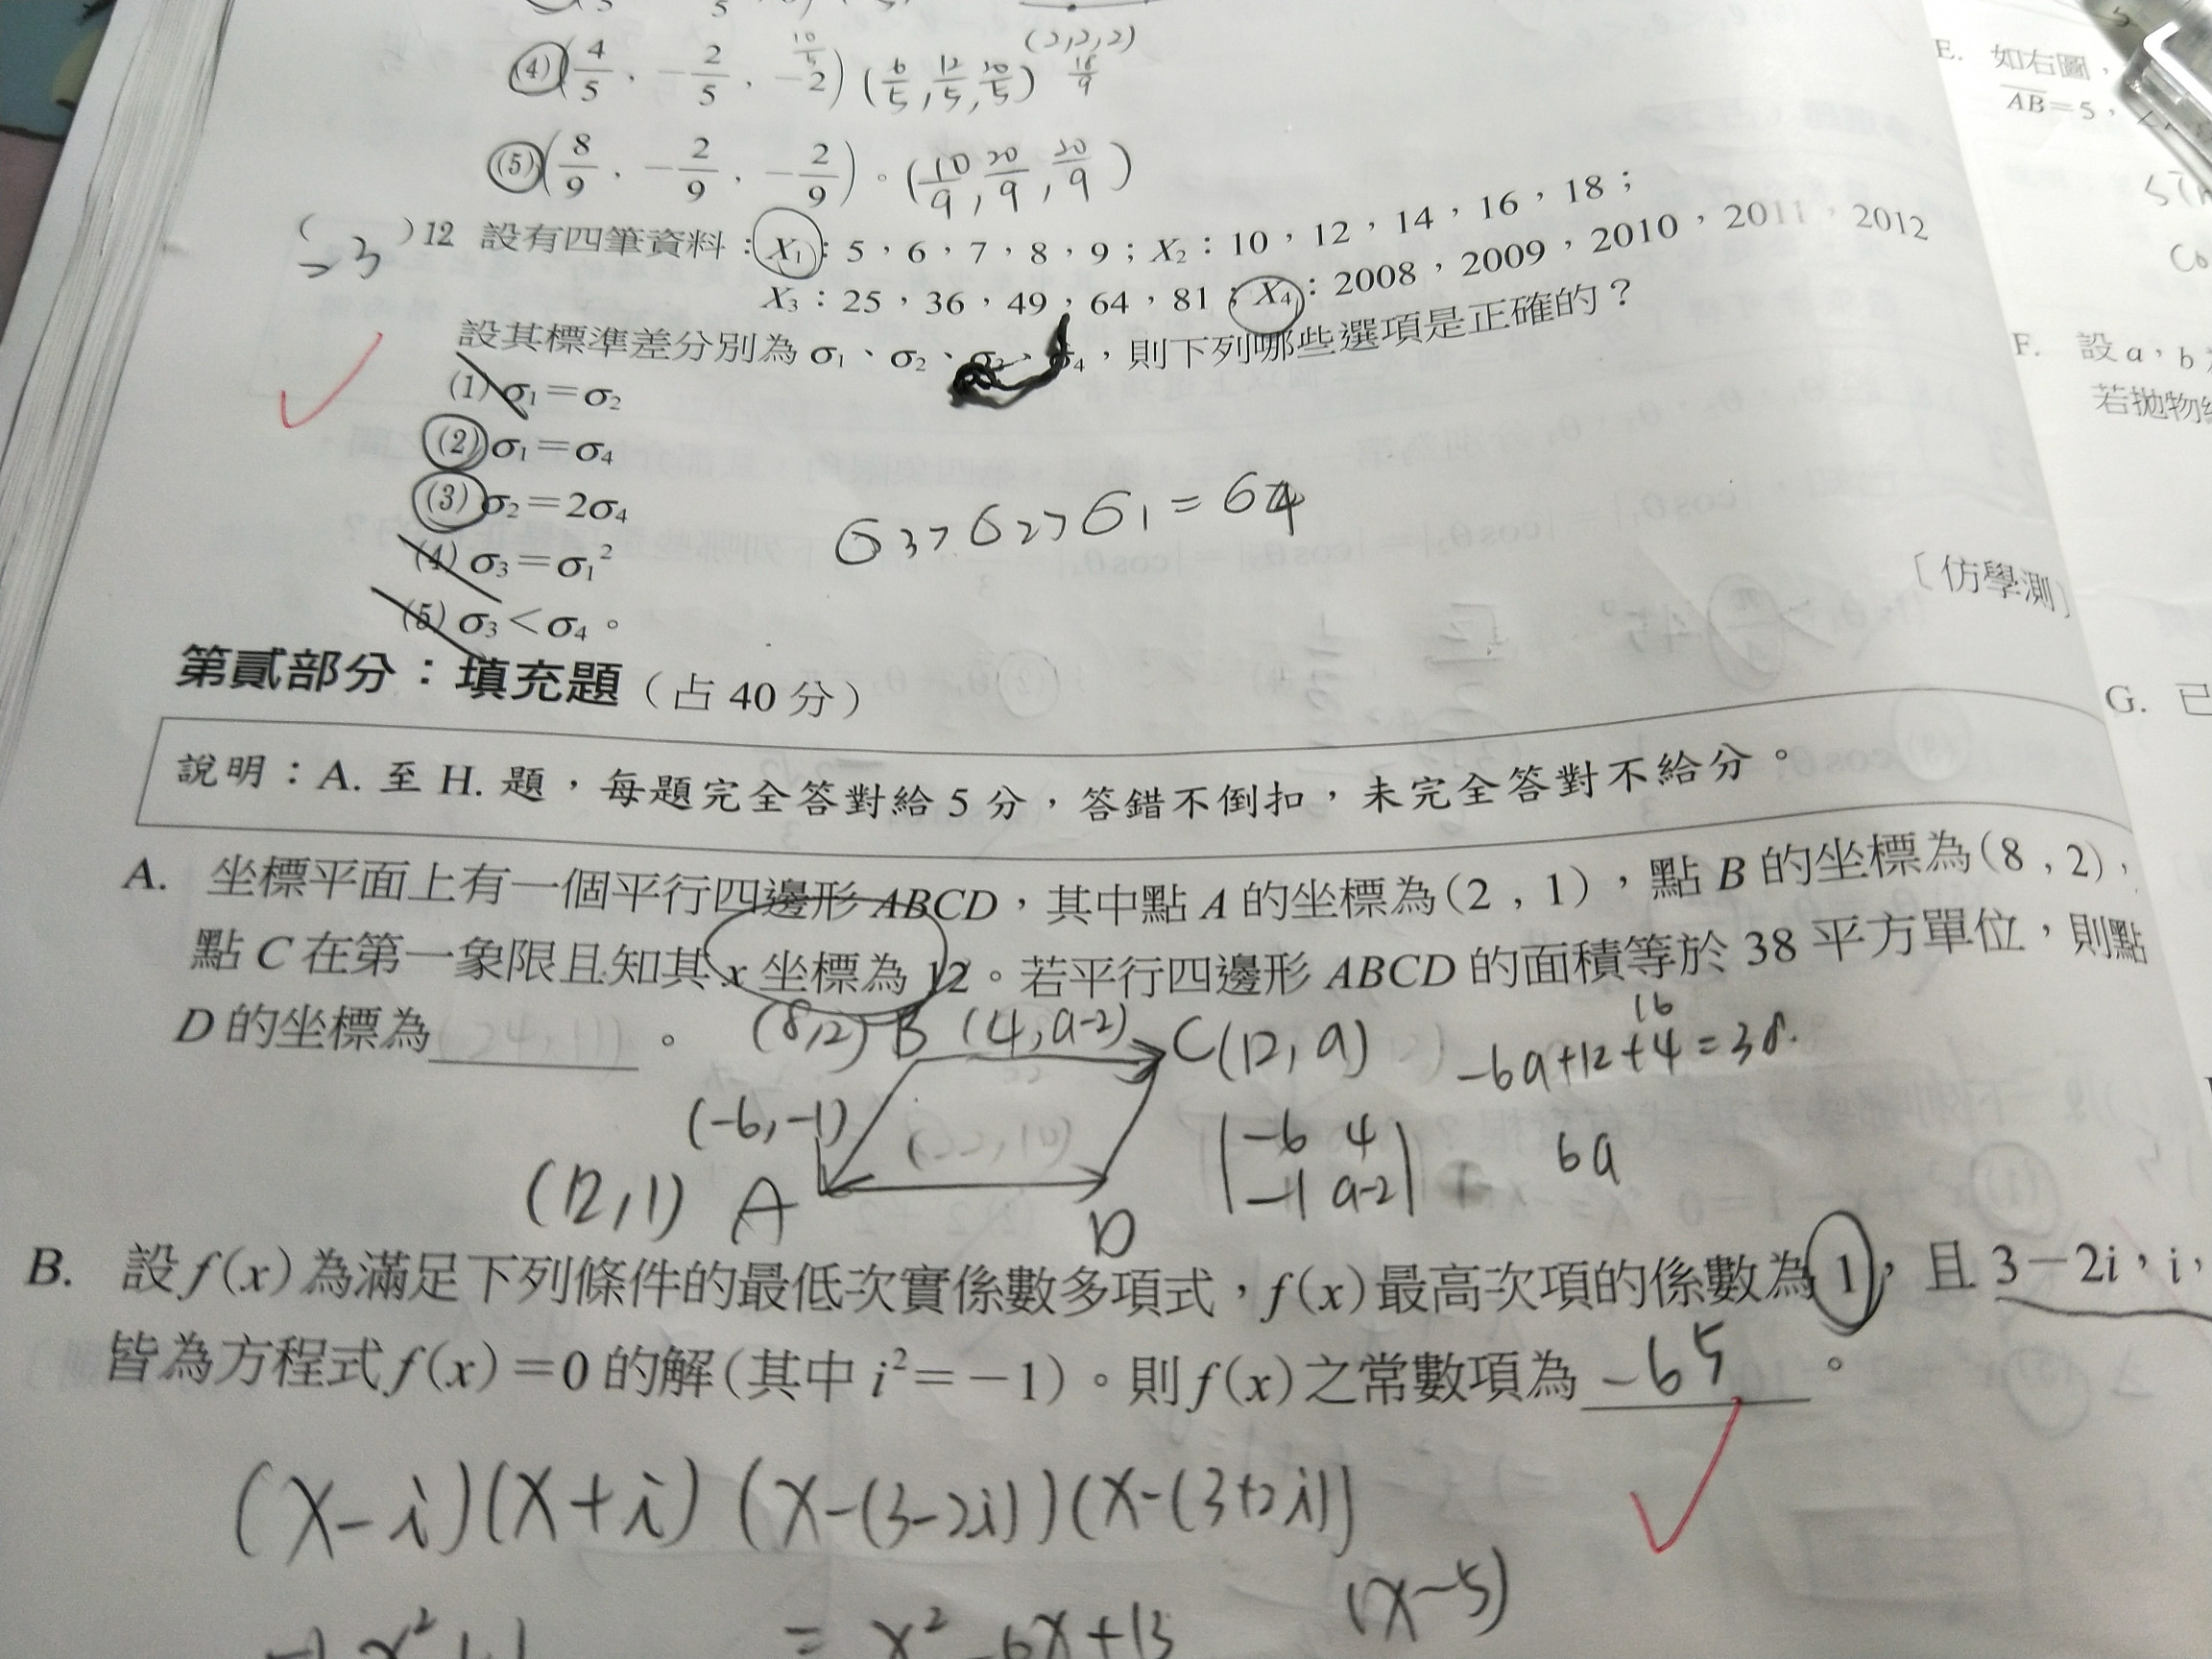 (4)(4/5，−2/5，−2) (6/5, 12/5, 10/5) (2,2,2) 18/9
(5)(8/9，−2/9，−2/9)。(10/9, 20/9, 20/9)
( 23 )12 設有四筆資料：X₁：5，6，7，8，9；X₂：10，12，14，16，18；
X₃：25，36，49，64，81；X₄：2008，2009，2010，2011，2012
設其標準差分別為σ₁、σ₂、σ₃、σ₄，則下列哪些選項是正確的？
(1) σ₁＝σ₂
(2) σ₁＝σ₄
(3) σ₂＝2σ₄
(4) σ₃＝σ₁²
(5) σ₃＜σ₄。
σ3>σ2>σ1=σ4
〔仿學測〕
第貳部分：填充題（占 40 分）
說明：A. 至 H. 題，每題完全答對給 5 分，答錯不倒扣，未完全答對不給分。
A. 坐標平面上有一個平行四邊形 ABCD，其中點 A 的坐標為(2，1)，點 B 的坐標為(8，2)，
點 C 在第一象限且知其 x 坐標為 12。若平行四邊形 ABCD 的面積等於 38 平方單位，則點
D 的坐標為 。
(8,2) B (4,a-2) C(12,a)
-6a+12+4=38.
16
(-6,-1)
|-6 4|
|-1 a-2|
6a
(12,1) A
D
B. 設 f(x) 為滿足下列條件的最低次實係數多項式，f(x) 最高次項的係數為 1，且 3－2i，i，
皆為方程式 f(x)＝0 的解(其中 i²＝－1)。則 f(x) 之常數項為 -65 。
(x-i)(x+i) (x-(3-2i))(x-(3+2i))
(x-5)
= x²-6x+13
E. 如右圖，
AB＝5，
F. 設 a，b
若拋物
G. 已